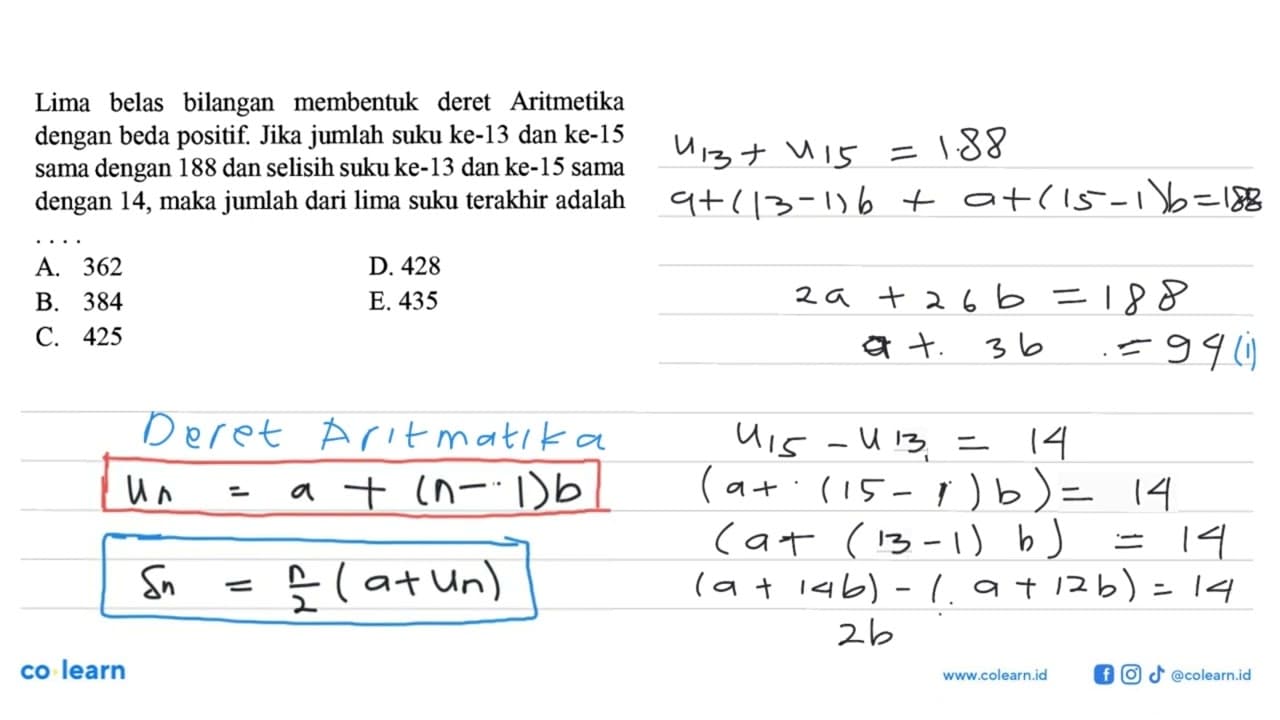 Lima belas bilangan membentuk deret Aritmetika
dengan beda positif. Jika jumlah suku ke-13 dan ke-15
sama dengan 188 dan selisih suku ke-13 dan ke-15 sama
dengan 14, maka jumlah dari lima suku terakhir adalah
. . . .
A. 362
B. 384
C. 425
D. 428
E. 435
Deret Aritmatika
Un = a + (n-1)b
Sn = n/2 (a+Un)
U13 + U15 = 188
a+(13-1)b + a+(15-1)b=188
2a + 26b = 188
a + 3b = 94 (i)
U15 - U13 = 14
(a+(15-1)b) = 14
(a+(13-1)b) = 14
(a+14b)-(a+12b)=14
2b
co learn
www.colearn.id
@colearn.id